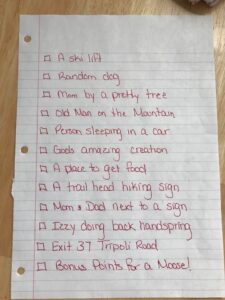 A ski lift
Random dog
Mom by a pretty tree
Old Man on the Mountain
Person sleeping in a car
Gods amazing creation
A place to get food
A trail head hiking sign
Mom & Dad next to a sign
Izzy doing back handspring
Exit 37 Tripoli Road
Bonus Points for a Moose!